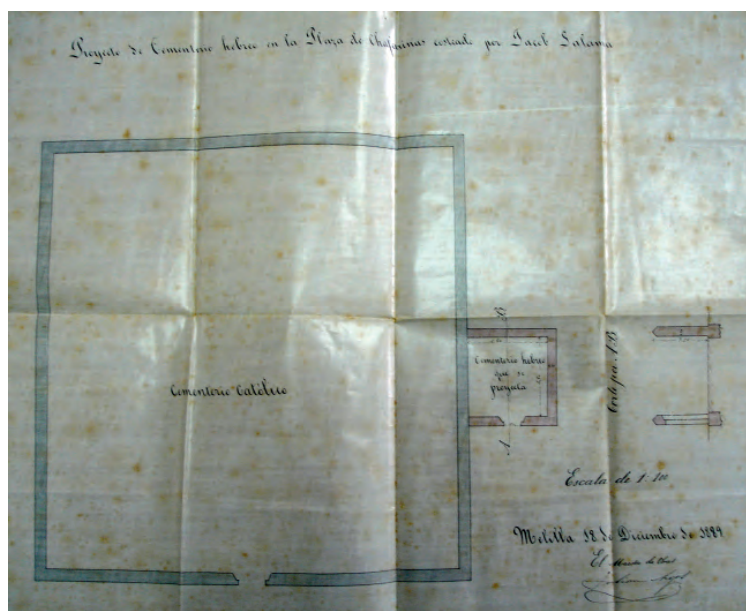 Proyecto de Cementerio hebreo en la Plaza de Chafarinas costeado por Jacob Salama
Cementerio Católico
Cementerio hebreo
que se
proyecta
B
A
Corte por A B
Escala de 1:100
Melilla 18 de Diciembre de 1889
El Maestro de Obras